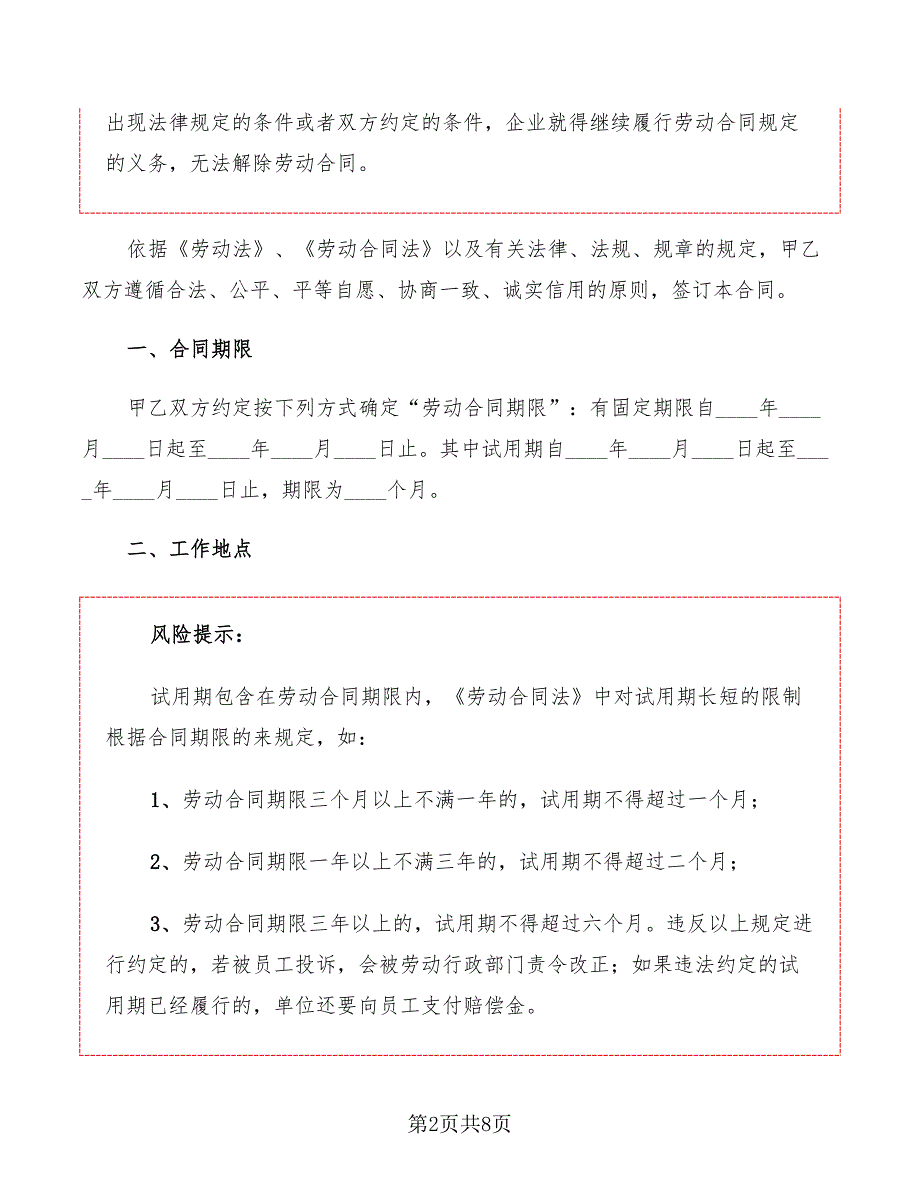 出现法律规定的条件或者双方约定的条件，企业就得继续履行劳动合同规定
的义务，无法解除劳动合同。
依据《劳动法》、《劳动合同法》以及有关法律、法规、规章的规定，甲乙
双方遵循合法、公平、平等自愿、协商一致、诚实信用的原则，签订本合同。
一、合同期限
甲乙双方约定按下列方式确定“劳动合同期限”：有固定期限自____年____
月____日起至____年____月____日止。其中试用期自____年____月____日起至___
_年____月____日止，期限为____个月。
二、工作地点
风险提示：
试用期包含在劳动合同期限内，《劳动合同法》中对试用期长短的限制
根据合同期限的来规定，如：
1、劳动合同期限三个月以上不满一年的，试用期不得超过一个月；
2、劳动合同期限一年以上不满三年的，试用期不得超过二个月；
3、劳动合同期限三年以上的，试用期不得超过六个月。违反以上规定进
行约定的，若被员工投诉，会被劳动行政部门责令改正；如果违法约定的试
用期已经履行的，单位还要向员工支付赔偿金。
第2页共8页